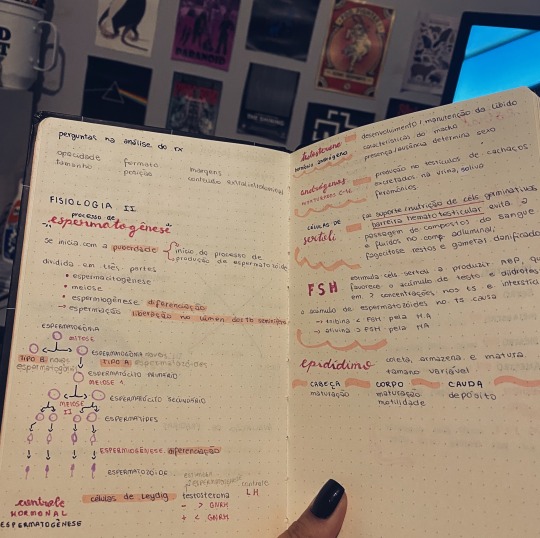 PARANOID
perguntas na análise do rx
opacidade formato margens
tamanho posição conteúdo extraluminal
FISIOLOGIA II
processo de
espermatogênese
se inicia com a puberdade início do processo de
produção de espermatozoide
dividida em três partes
• espermacitogênese
• meiose
• espermiogênese diferenciação
→ espermiação liberação no lúmen dos tb seminíferos
ESPERMATOGÔNIA
MITOSE
TIPO B novas
espermatogônias
ESPERMATOGÔNIA
TIPO A
ESPERMATÓCITO PRIMÁRIO
MEIOSE 1
ESPERMATÓCITO SECUNDÁRIO
MEIOSE
II
ESPERMÁTIDES
ESPERMIOGÊNESE diferenciação
ESPERMATOZÓIDE
controle
HORMONAL
ESPERMATOGÊNESE
células de Leydig testosterona
controle
LH
- > GNRH
+ < GNRH
testosterona desenvolvimento/manutenção da libido
hormônio andrógeno características do macho
presença/ausência determina sexo
andrógenos produção no testículos de cachaços
excretados na urina, saliva
feromônios
CÉLULAS DE
sertoli
faz suporte/nutrição de cels germinativas
barreira hematotesticular evita a
passagem de compostos do sangue
e fluidos no comp. adluminal;
fagocitose restos e gametas danificados
FSH
estimula cels sertoli a produzir ABP, que
favorece o acúmulo de testo e
em > concentrações nos ts e
o acúmulo de espermatozoides no ts causa
→ inibina < FSH pela H.A
→ ativina > FSH pela HA
epidídimo coleta, armazena e matura
tamanho variável
CABEÇA CORPO CAUDA
maturação maturação depósito
motilidade